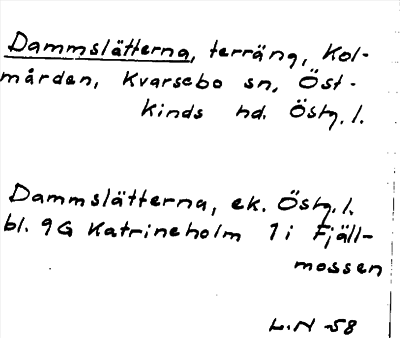 Dammslätterna, terräng, Kol-
mården, Kvarsebo sn, Öst-
kinds hd. Östg. l.
Dammslätterna, ek. Östg. l.
bl. 9G Katrineholm 1 i Fjäll-
mossen
L.N -58